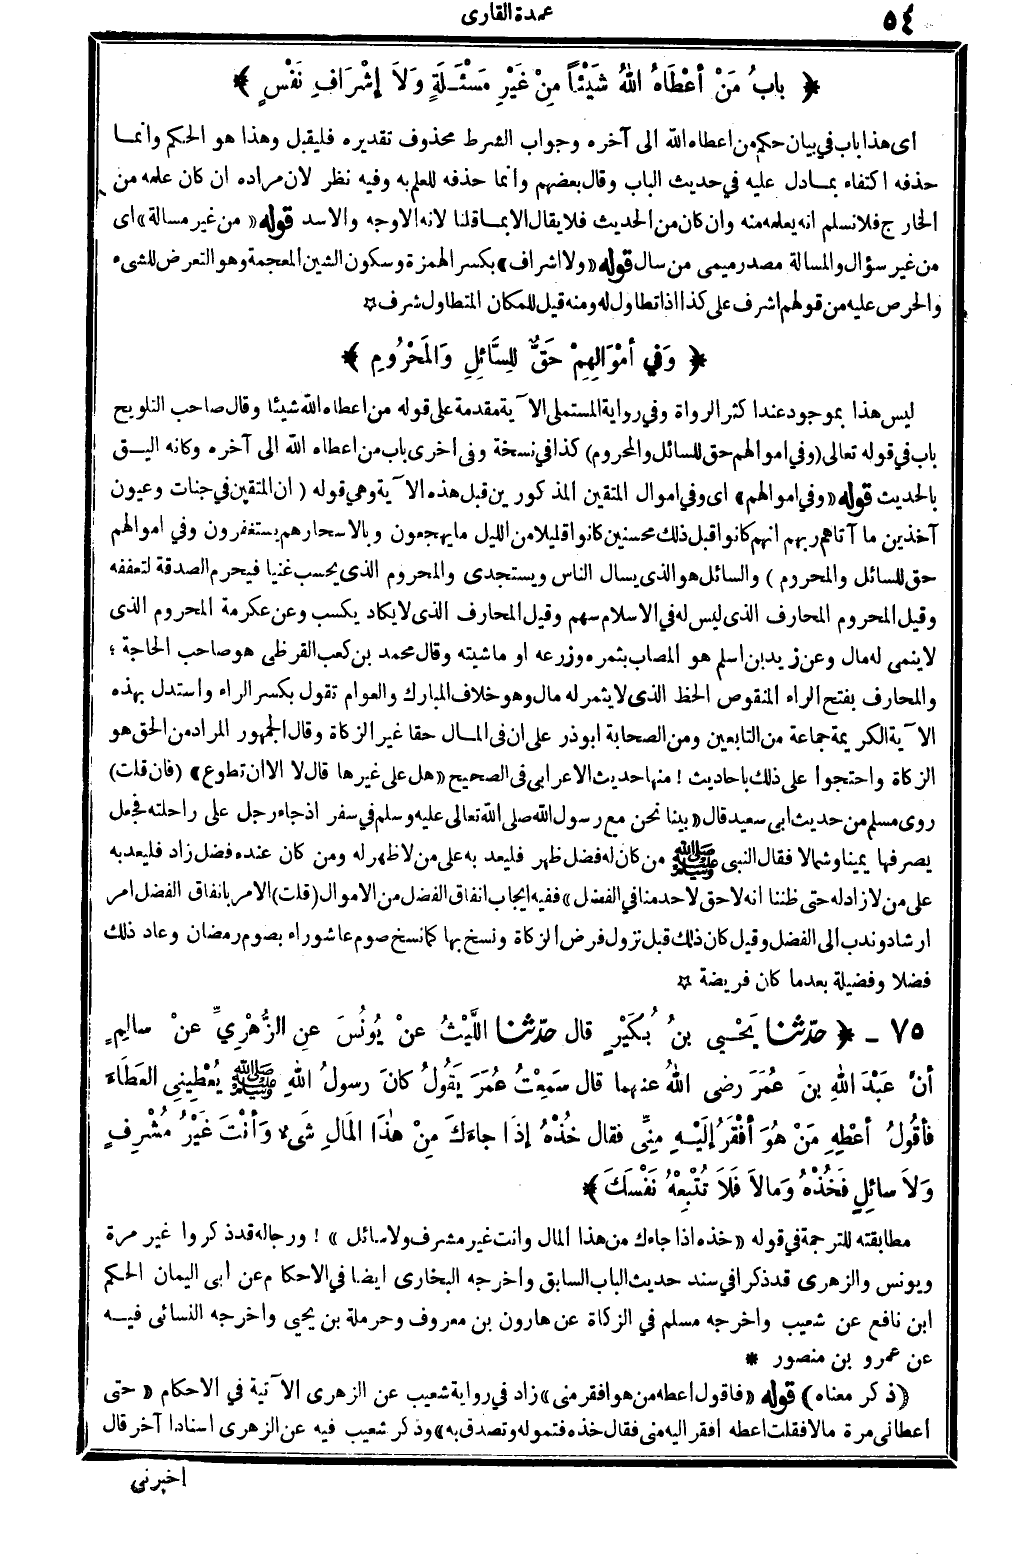 ٥٤
عمدة القارى
﴿ بابُ مَنْ أعْطَاهُ اللهُ شَيْئاً مِنْ غَيْرِ مَسْئَـلَةٍ وَلاَ إشْرَافِ نَفْسٍ ﴾
اى هذا باب فى بيان حكم من اعطاه الله الى آخره وجواب الشرط محذوف تقديره فليقبل وهذا هو الحكم وانمـا
حذفه اكتفاء بمـادل عليه في حديث الباب وقال بعضهم وانما حذفه للعلم به وفيه نظر لان مراده ان كان علمه من
الخارج فلانسلم انه يعلمه منه وان كان من الحديث فلا يقال الابمـاقلنا لانه الاوجه والاسد قوله «من غير مسالة» اى
من غير سؤال والمسالة مصدر ميمى من سال قوله «ولا اشراف» بكسر الهمزة وسكون الشين المعجمة وهو التعرض للشىء
والحرص عليه من قولهم اشرف على كذا اذا تطاول له ومنه قيل للمكان المتطاول شرف ☆
﴿ وَفي أمْوَالِهِمْ حَقٌّ لِلسَّائِلِ وَالمَحْرُومِ ﴾
ليس هذا بموجود عند اكثر الرواة وفي رواية المستملى الآية مقدمة على قوله من اعطاه الله شيئا وقال صاحب التلويح
باب في قوله تعالى (وفي اموالهم حق للسائل والمحروم) كذا في نسخة وفى اخرى باب من اعطاه الله الى آخره وكانه اليـق
بالحديث قوله «وفي اموالهم» اى وفي اموال المتقين المذكورين قبل هذه الآية وهي قوله ( ان المتقين في جنات وعيون
آخذين ما آتاهم ربهم انهم كانوا قبل ذلك محسنين كانوا قليلا من الليل مايهجعون وبالاسحار هم يستغفرون وفي اموالهم
حق للسائل والمحروم ) والسائل هو الذى يسال الناس ويستجدى والمحروم الذى يحسب غنيا فيحرم الصدقة لتعففه
وقيل المحروم المحارف الذى ليس له في الاسلام سهم وقيل المحارف الذى لايكاد يكسب وعن عكرمة المحروم الذى
لاينمى له مال وعن زيد بن اسلم هو المصاب بثمره وزرعه او ماشيته وقال محمد بن كعب القرظى هو صاحب الحاجة ؛
والمحارف بفتح الراء المنقوص الحظ الذى لايثمر له مال وهو خلاف المبارك والعوام تقول بكسر الراء واستدل بهذه
الآية الكريمة جماعة من التابعين ومن الصحابة ابوذر على ان فى المـال حقا غير الزكاة وقال الجمهور المراد من الحق هو
الزكاة واحتجوا على ذلك باحاديث ! منها حديث الاعرابى فى الصحيح «هل على غيرها قال لا الا ان تطوع» (فان قلت)
روى مسلم من حديث ابى سعيد قال «بينا نحن مع رسول الله صلى الله تعالى عليه وسلم في سفر اذ جاء رجل على راحلته فجعل
يصرفها يمينا وشمالا فقال النبى ﷺ من كان له فضل ظهر فليعد به على من لاظهر له ومن كان عنده فضل زاد فليعد به
على من لا زاد له حتى ظننا انه لاحق لاحد منا في الفضل» ففيه ايجاب انفاق الفضل من الاموال (قلت) الامر بانفاق الفضل امر
ارشاد وندب الى الفضل وقيل كان ذلك قبل نزول فرض الزكاة ونسخ بها كما نسخ صوم عاشوراء بصوم رمضان وعاد ذلك
فضلا وفضيلة بعدما كان فريضة ☆
٧٥ ـ ﴿ حدّثنا يَحْيى بنُ بُكَيْرٍ قال حدّثنا اللَّيْثُ عنْ يُونُسَ عنِ الزُّهْرِيِّ عنْ سالِمٍ
أنَّ عَبْدَ اللهِ بنَ عُمَرَ رضى اللهُ عنهما قال سَمِعْتُ عُمَرَ يَقُولُ كانَ رسولُ اللهِ ﷺ يُعْطِينِى العَطَاءَ
فأقُولُ أعْطِهِ مَنْ هُوَ أفْقَرُ إلَيْـهِ مِنِّى فقال خُذْهُ إذَا جاءَكَ مِنْ هذَا المَالِ شَىءٌ وَأنْتَ غَيْرُ مُشْرِفٍ
وَلاَ سائِلٍ فَخُذْهُ وَمالاَ فَلاَ تُتْبِعْهُ نَفْسَكَ ﴾
مطابقته للترجمة في قوله «خذه اذا جاءك من هذا المال وانت غير مشرف ولا سائل» ! ورجاله قد ذكروا غير مرة
ويونس والزهرى قد ذكرا في سند حديث الباب السابق واخرجه البخارى ايضا في الاحكام عن أبى اليمان الحكم
ابن نافع عن شعيب واخرجه مسلم في الزكاة عن هارون بن معروف وحرملة بن يحيى واخرجه النسائى فيـه
عن عمرو بن منصور *
(ذكر معناه) قوله «فاقول اعطه من هو افقر منى» زاد في رواية شعيب عن الزهرى الآتية في الاحكام « حتى
أعطانى مرة مالا فقلت اعطه افقر اليه منى فقال خذه فتموله وتصدق به» وذكر شعيب فيه عن الزهرى اسنادا آخر قال
اخبرنى